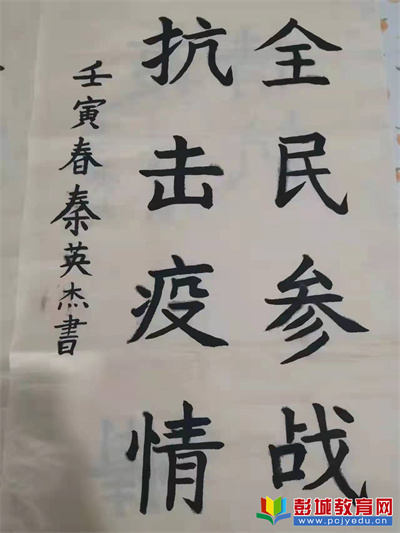 全民参战
抗击疫情
壬寅春秦英杰書
彭城教育网
www.pcjyedu.cn